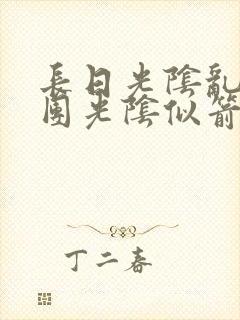 長日光陰亂
團光陰似箭
丁二春